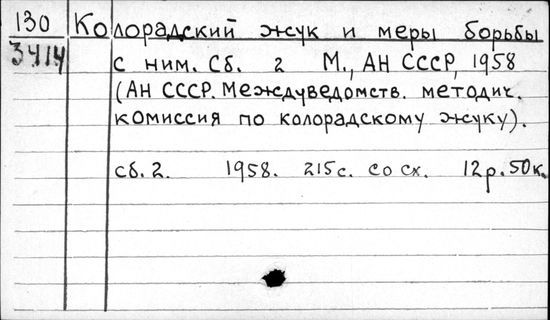 130 Колорадский жук и меры борьбы
3414 с ним. Сб. 2 М., АН СССР, 1958
(АН СССР. Междуведомств. методич.
комиссия по колорадскому жуку).
сб. 2. 1958. 215 с. со сх. 12 р. 50 к.